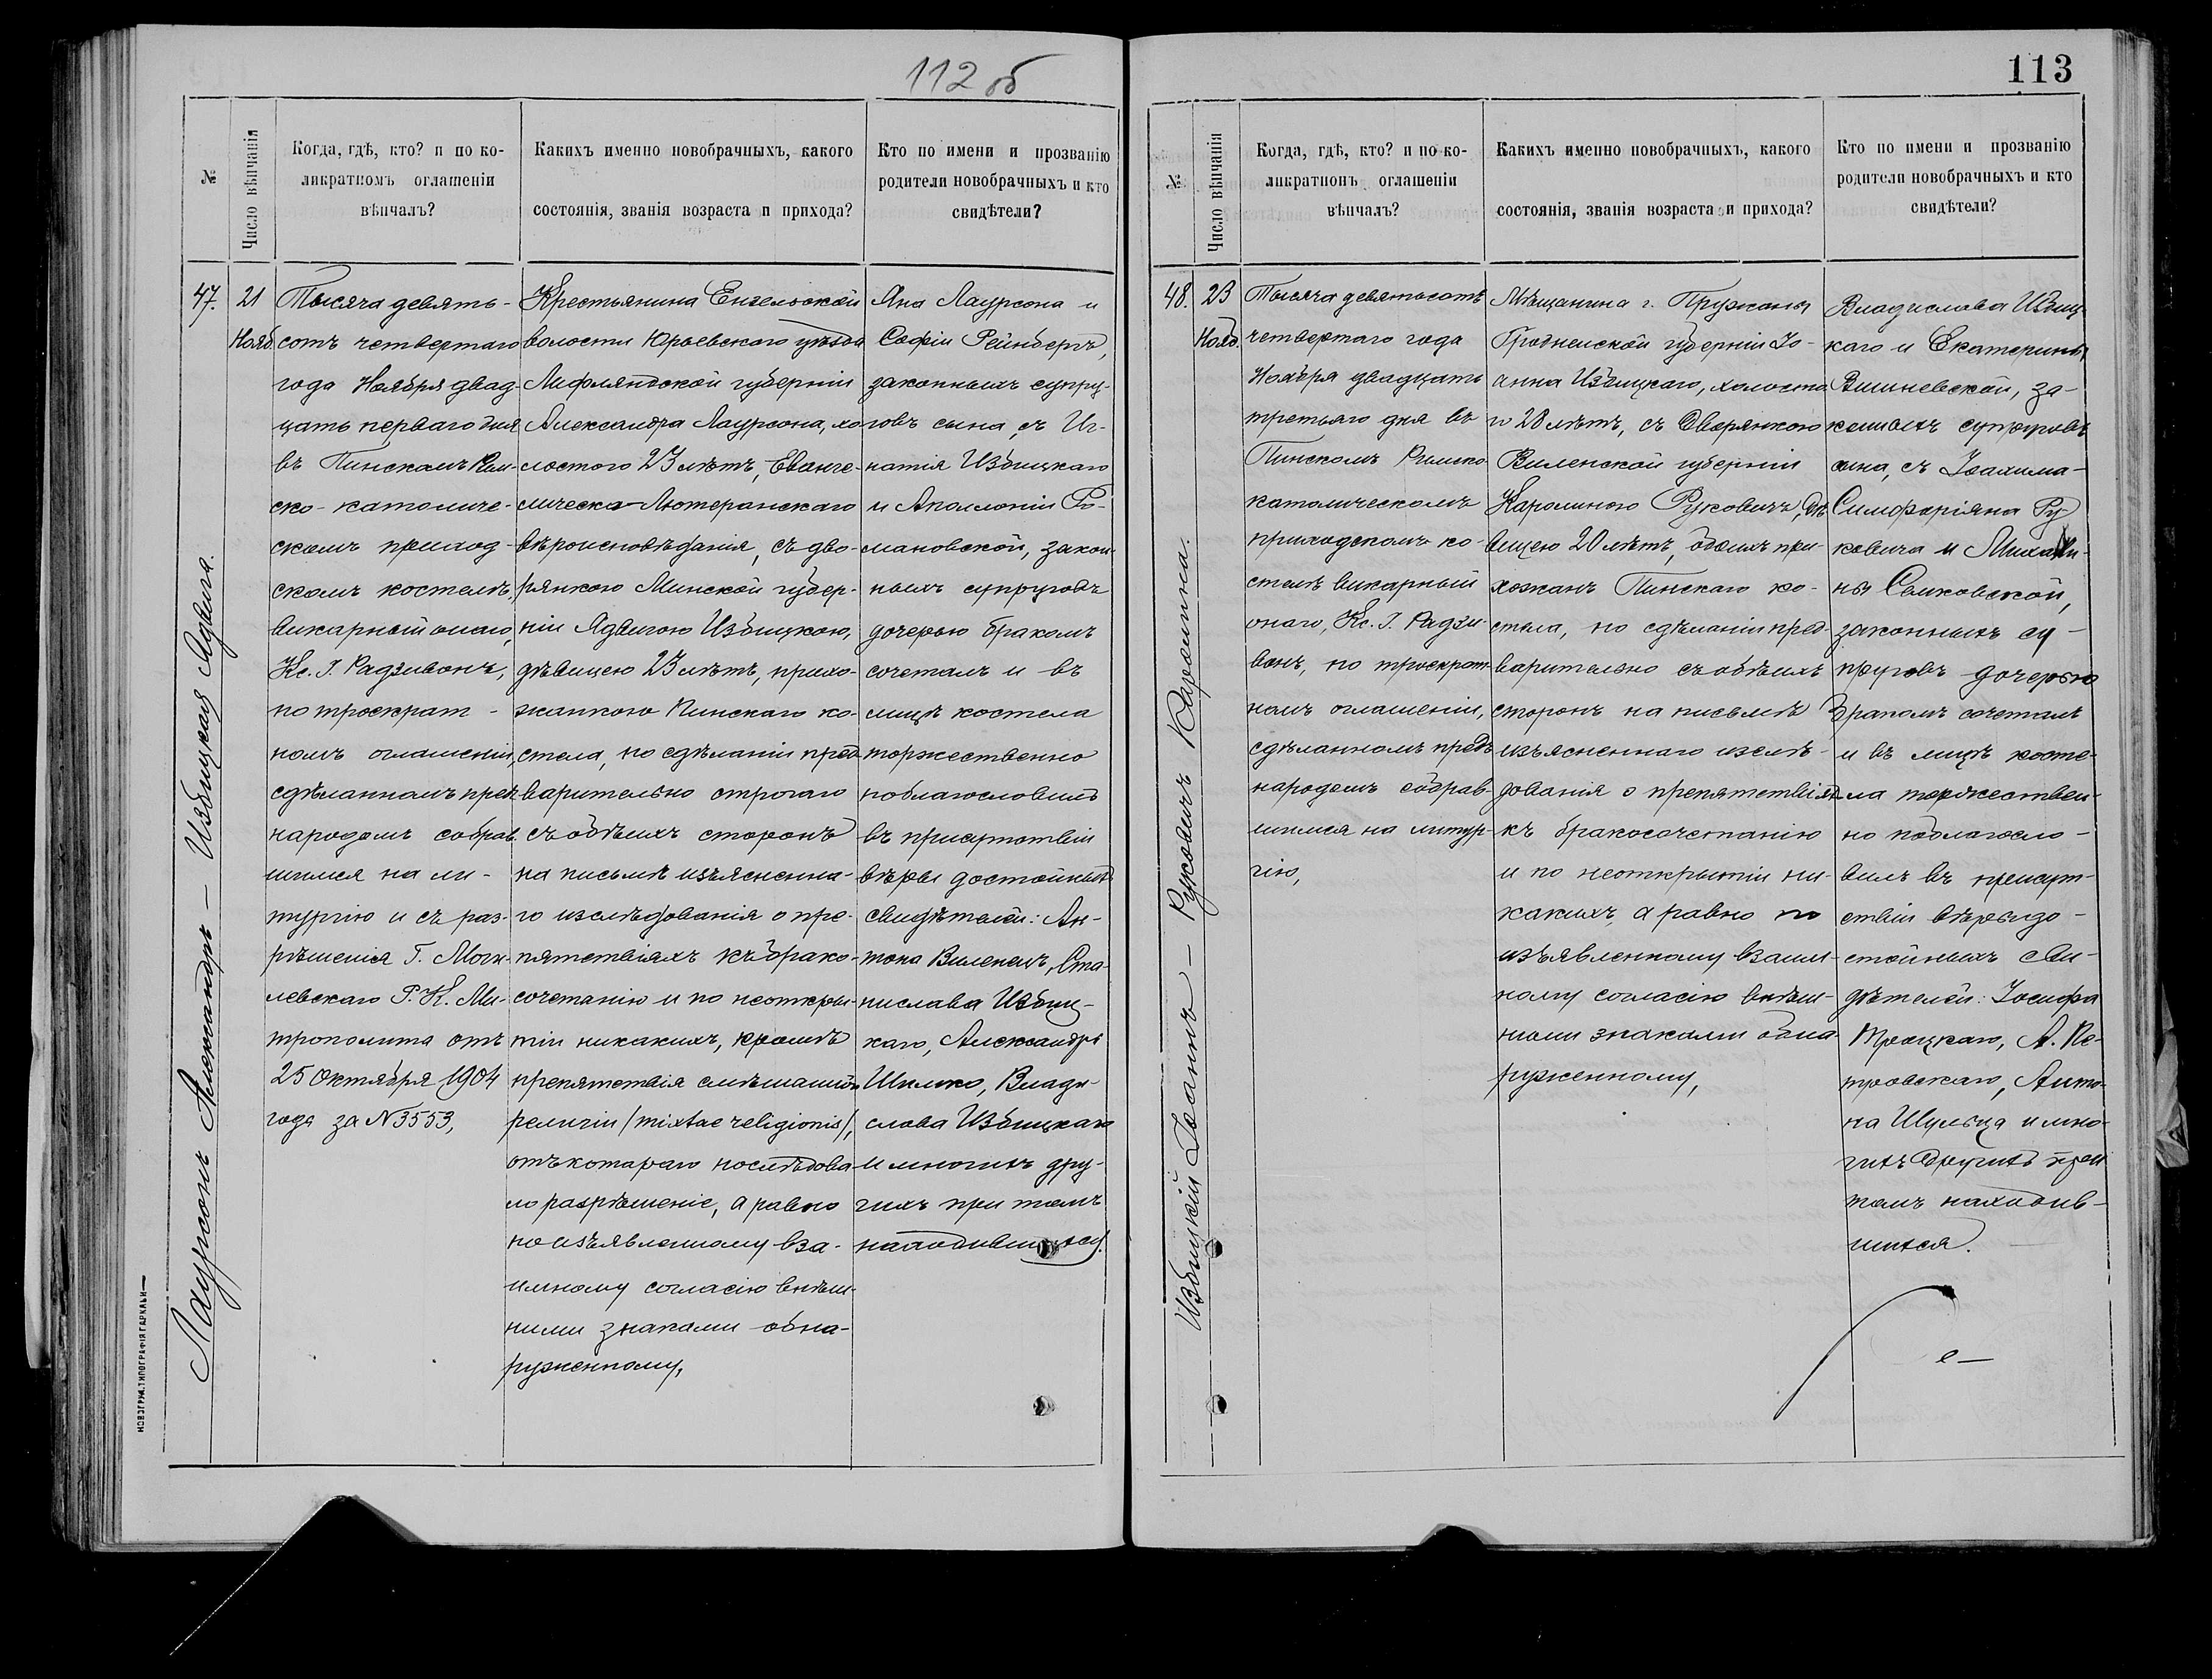 112 об
№
Число вѣнчанія
Когда, гдѣ, кто? и по ко-
ликратномъ оглашеніи
вѣнчалъ?
Какихъ именно новобрачныхъ, какого
состоянія, званія возраста и прихода?
Кто по имени и прозванію
родители новобрачныхъ и кто
свидѣтели?
Лаурсонъ Александръ — Избицкая Ядвига.
47.
21
Нояб.
Тысяча девять-
сотъ четвертаго
года Ноября двад-
цать перваго дня
въ Пинскомъ Рим-
ско-католиче-
скомъ приход-
скомъ костелѣ,
викарный онаго,
Кс. I. Радзивонъ,
по троекрат-
номъ оглашеніи,
сдѣланномъ предъ
народомъ собрав-
шимся на ли-
тургію и съ раз-
рѣшенія Г. Моги-
левскаго Р. К. Ми-
трополита отъ
25 Октября 1904
года за N 3553,
Крестьянина Енгельской
волости Юрьевского уѣзда
Лифляндской губерніи
Александра Лаурсона, хо-
лостого 23 лѣтъ, Еванге-
лическо-Лютеранскаго
вѣроисповѣданія, съ дво-
рянкою Минской губер-
ніи Ядвигою Избицкою,
дѣвицею 23 лѣтъ, прихо-
жанкою Пинскаго ко-
стела, по сдѣланіи пред-
варительно строгаго
съ обѣихъ сторонъ
на письмѣ изъясненна-
го изслѣдованія о пре-
пятствіяхъ къ брако-
сочетанію и по неоткры-
тіи никакихъ, кромѣ
препятствія смѣшанной
религіи /mixtae religionis/,
отъ котораго послѣдова-
ло разрѣшеніе, а равно
по изъявленному вза-
имному согласію внѣш-
ними знаками обна-
руженному,
Яна Лаурсона и
Софіи Рейнбергъ,
законныхъ супру-
говъ сына, съ Иг-
натія Избицкаго
и Аполлоніи Ро-
мановской, закон-
ныхъ супруговъ
дочерью бракомъ
сочеталъ и въ
лицѣ костела
торжественно
поблагословилъ
въ присутствіи
вѣры достойныхъ
свидѣтелей: Ан-
тона Виленецъ, Ста-
нислава Избиц-
каго, Александра
Шилко, Влади-
слава Избицкаго
и многихъ дру-
гихъ при томъ
находившихся.
НОВОГРУД. ТИПОГРАФІЯ ГАРКАВИ
113
№
Число вѣнчанія
Когда, гдѣ, кто? и по ко-
ликратномъ оглашеніи
вѣнчалъ?
Какихъ именно новобрачныхъ, какого
состоянія, званія возраста и прихода?
Кто по имени и прозванію
родители новобрачныхъ и кто
свидѣтели?
Избицкій Іоаннъ — Руковичъ Каролина.
48.
23
Нояб.
Тысяча девятьсотъ
четвертаго года
Ноября двадцать
третьяго дня въ
Пинскомъ Римско-
католическомъ
приходскомъ ко-
стелѣ викарный
онаго, Кс. I. Радзи-
вонъ, по троекрат-
номъ оглашеніи,
сдѣланномъ предъ
народомъ собрав-
шимся на литур-
гію,
Мѣщанина г. Пружаны
Гродненской губерніи Іо-
анна Избицкаго, холоста-
го 28 лѣтъ, съ Дворянкою
Виленской губерніи
Каролиною Руковичъ, дѣ-
вицею 20 лѣтъ, обоихъ при-
хожанъ Пинскаго ко-
стела, по сдѣланіи пред-
варительно съ обѣихъ
сторонъ на письмѣ
изъясненнаго изслѣ-
дованія о препятствіяхъ
къ бракосочетанію
и по неоткрытіи ни-
какихъ, а равно по
изъявленному взаим-
ному согласію внѣш-
ними знаками обна-
руженному,
Владислава Избиц-
каго и Екатерины
Вишневской, за-
конныхъ супруговъ
сына, съ Іоахима-
Симфоріяна Ру-
ковича и Михали-
ны Сликовской,
законныхъ су-
пруговъ дочерью
бракомъ сочеталъ
и въ лицѣ косте-
ла торжествен-
но поблагосло-
вилъ въ присут-
ствіи вѣры до-
стойныхъ сви-
дѣтелей: Іосифа
Троицкаго, А. Пе-
тровскаго, Анто-
на Шульца и мно-
гихъ другихъ при
томъ находив-
шихся.